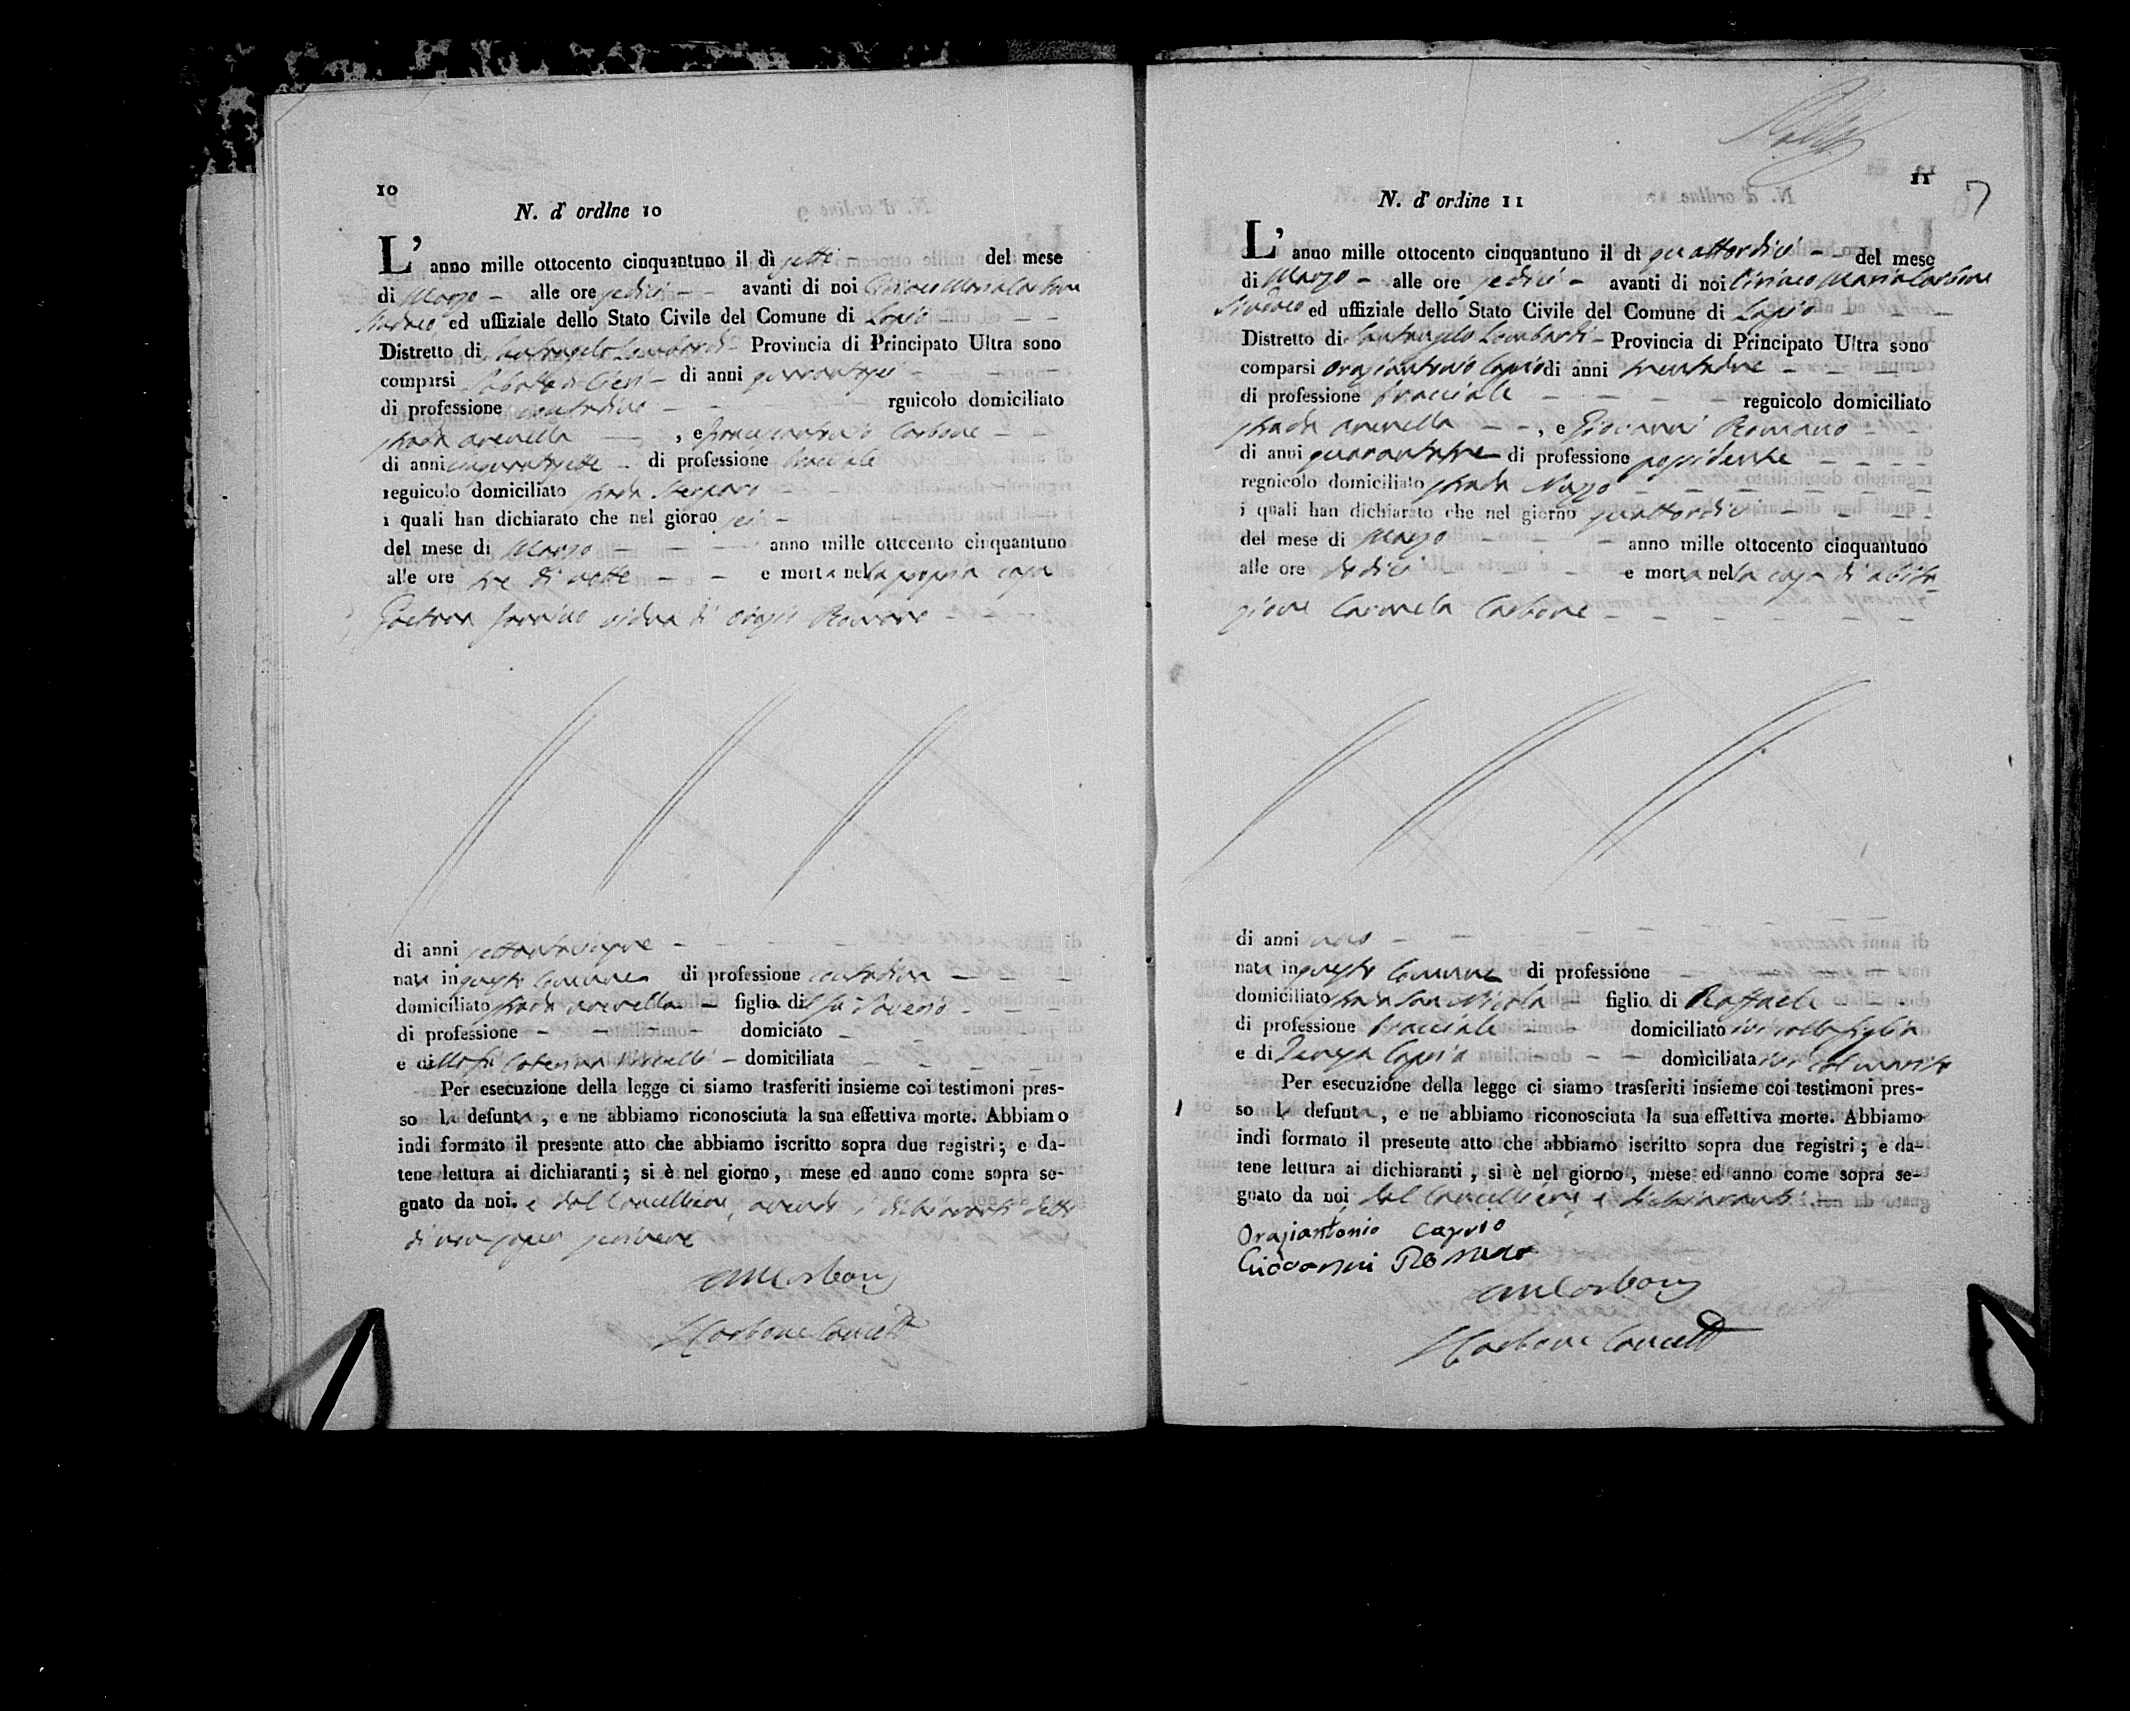 10
N. d' ordlne 10
L' anno mille ottocento cinquantuno il dì sette del mese
di Marzo alle ore sedici avanti di noi Ciriaco Maria Carbone
Sindaco ed uffiziale dello Stato Civile del Comune di Lapio
Distretto di Santangelo Lombardi Provincia di Principato Ultra sono
comparsi Sabato di Cieri di anni quarantasei
di professione contadino rguicolo domiciliato
strada arenella , e Francescantonio Carbone
di anni cinquantasette di professione bracciale
reguicolo domiciliato strada
i quali han dichiarato che nel giorno sei
del mese di Marzo anno mille ottocento cinquantuno
alle ore tre di notte e morta nella propria casa
Gaetana vidua di Orazio Romano
di anni settantacinque
nata in questo Comune di professione contadina
domiciliato strada arenella figlia di fu Saverio
di professione domiciato
e di lla fu Caterina domiciliata
Per esecuzione della legge ci siamo trasferiti insieme coi testimoni pres-
so la defunta, e ne abbiamo riconosciuta la sua effettiva morte. Abbiamo
indi formato il presente atto che abbiamo iscritto sopra due registri; e da-
tene lettura ai dichiaranti; si è nel giorno, mese ed anno come sopra se-
gnato da noi. e dal Cancelliere, avendo i dichiaranti detto
di non saper scrivere
CMCarbone
Carbone Cancell
11
7
N. d' ordine 11
L' anno mille ottocento cinquantuno il dì quattordici del mese
di Marzo alle ore sedici avanti di noi Ciriaco Maria Carbone
Sindaco ed uffiziale dello Stato Civile del Comune di Lapio
Distretto di Santangelo Lombardi Provincia di Principato Ultra sono
comparsi Oraziantonio Caprio di anni trentadue
di professione bracciale regnicolo domiciliato
strada arenella , e Giovanni Romano
di anni quarantatre di professione possidente
regnicolo domiciliato strada
i quali han dichiarato che nel giorno quattordici
del mese di Marzo anno mille ottocento cinquantuno
alle ore dodici e morta nella casa di abita-
zione Carmela Carbone
di anni uno
nata in questo Comune di professione
domiciliato strada San Nicola figlia di Raffaele
di professione bracciale domiciliato ivi colla figlia
e di Teresa Caprio domiciliata ivi col marito
Per esecuzione della legge ci siamo trasferiti insieme coi testimoni pres-
so la defunta, e ne abbiamo riconosciuta la sua effettiva morte. Abbiamo
indi formato il presente atto che abbiamo iscritto sopra due registri; e da-
tene lettura ai dichiaranti, si è nel giorno, mese ed anno come sopra se-
gnato da noi, dal Cancelliere e dichiaranti
Oraziantonio Caprio
Giovanni Romano
CMCarbone
Carbone Cancell